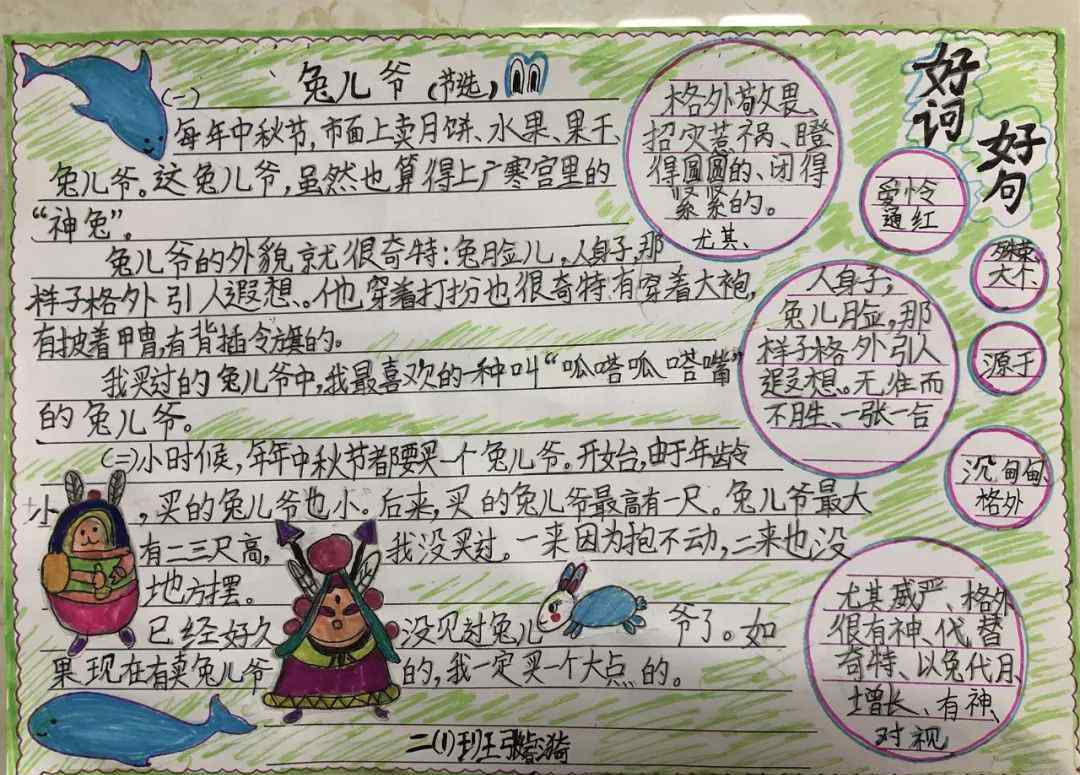 兔儿爷(节选)
(一)
每年中秋节,市面上卖月饼、水果、果干、
兔儿爷。这兔儿爷,虽然也算得上广寒宫里的
“神兔”。
兔儿爷的外貌就很奇特:兔脸儿,人身子,那
样子格外引人遐想。他穿着打扮也很奇特:有穿着大袍,
有披着甲胄,有背插令旗的。
我买过的兔儿爷中,我最喜欢的一种叫“呱嗒呱嗒嘴”
的兔儿爷。
(二)小时候,每年中秋节都要买一个兔儿爷。开始,由于年龄
小,买的兔儿爷也小。后来,买的兔儿爷最高有一尺。兔儿爷最大
有二三尺高,我没买过。一来因为抱不动,二来也没
地方摆。
已经好久没见过兔儿爷了。如
果现在有卖兔儿爷的,我一定买一个大点的。
二(1)班张
好词
好句
格外敬畏、
招灾惹祸、瞪
得圆圆的、闭得
紧紧的。
尤其、
爱怜
通红
大个、
人身子,
兔儿脸,那
样子格外引人
遐想。无胫而
不胜、一张一合
源于
沉甸甸、
格外
尤其威严、格外
很有神、代替
奇特、以兔代月、
增长、有神、
对视